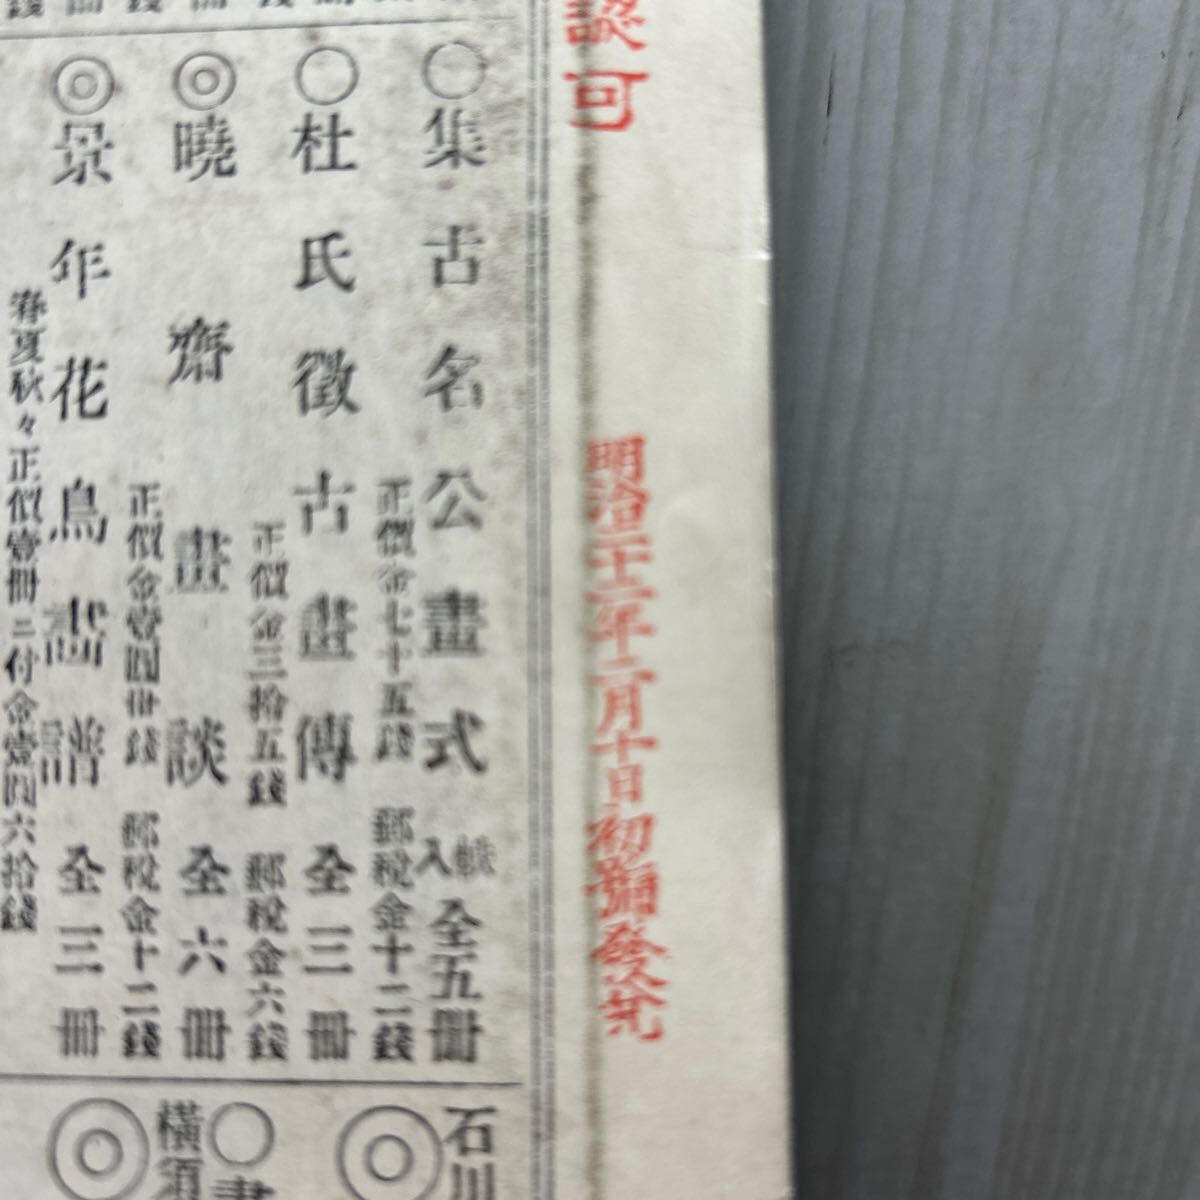 認可
明治二十二年二月十日初號發兌
○集古名公畫式 帙入 全五冊
正價金七十五錢 郵税金十二錢
○杜氏徵古畫傳 全三冊
正價金三拾五錢 郵税金六錢
◎曉齋畫談 全六冊
正價金壹圓卅錢 郵税金十二錢
◎景年花鳥畵譜 全三冊
春夏秋々正價壹冊ニ付金壹圓六拾錢
石川
◎
○畫
横須
◎